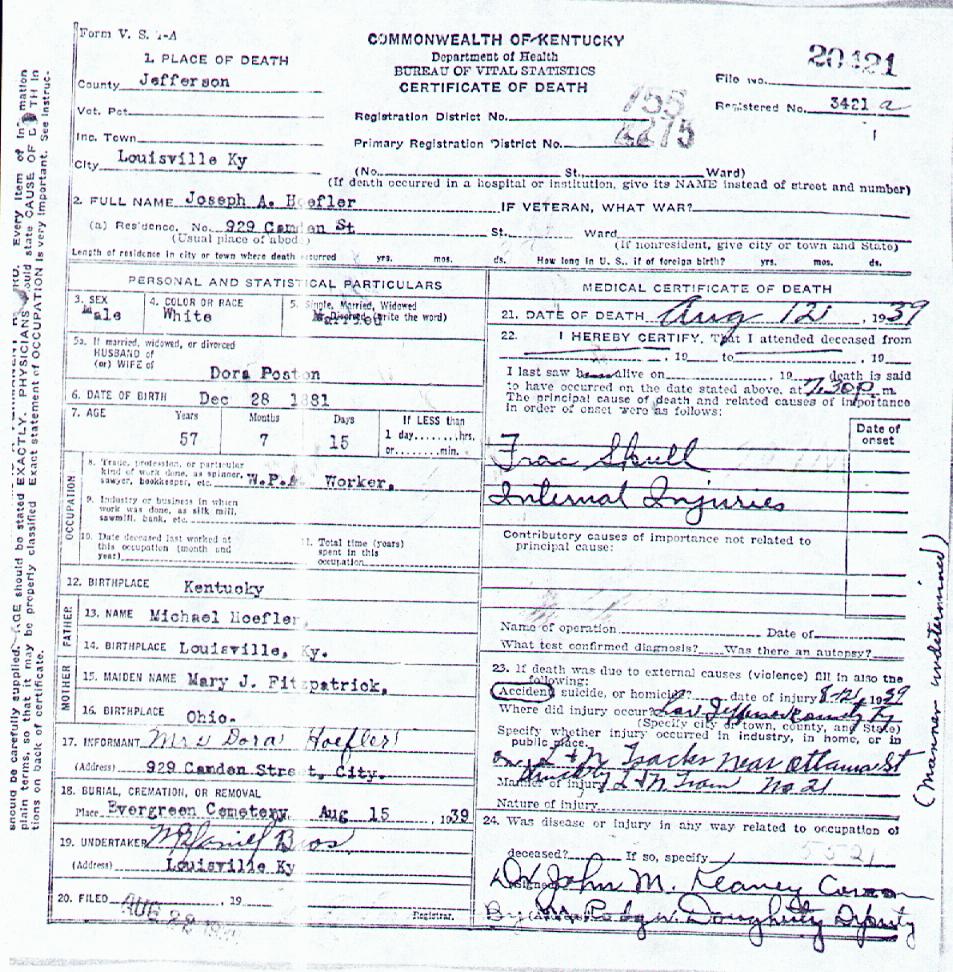 Form V. S. 1-A
COMMONWEALTH OF KENTUCKY
Department of Health
BUREAU OF VITAL STATISTICS
CERTIFICATE OF DEATH
20421
File No.
Registered No. 3421 a
1. PLACE OF DEATH
County Jefferson
Vot. Pct.
Inc. Town
City Louisville Ky
Registration District No. 755
Primary Registration District No. 4275
(No. St., Ward)
(If death occurred in a hospital or institution, give its NAME instead of street and number)
2. FULL NAME Joseph A. Hoefler IF VETERAN, WHAT WAR?
(a) Residence. No. 929 Camden St St., Ward
(Usual place of abode) (If nonresident, give city or town and State)
Length of residence in city or town where death occurred yrs. mos. ds. How long in U. S., if of foreign birth? yrs. mos. ds.
PERSONAL AND STATISTICAL PARTICULARS
3. SEX Male
4. COLOR OR RACE White
5. Single, Married, Widowed or Divorced (write the word) Married
5a. If married, widowed, or divorced
HUSBAND of
(or) WIFE of Dora Poston
6. DATE OF BIRTH Dec 28 1881
7. AGE Years Months Days If LESS than
57 7 15 1 day........hrs.
or........min.
OCCUPATION
8. Trade, profession, or particular
kind of work done, as spinner,
sawyer, bookkeeper, etc. W.P.A. Worker.
9. Industry or business in which
work was done, as silk mill,
sawmill, bank, etc.
10. Date deceased last worked at
this occupation (month and
year)
11. Total time (years)
spent in this
occupation
12. BIRTHPLACE Kentucky
FATHER
13. NAME Michael Hoefler
14. BIRTHPLACE Louisville, Ky.
MOTHER
15. MAIDEN NAME Mary J. Fitzpatrick,
16. BIRTHPLACE Ohio.
17. INFORMANT Mrs Dora Hoefler
(Address) 929 Camden Street, City.
18. BURIAL, CREMATION, OR REMOVAL
Place Evergreen Cemetery Aug 15, 1939
19. UNDERTAKER Bros
(Address) Louisville Ky
20. FILED AUG , 19
Registrar.
MEDICAL CERTIFICATE OF DEATH
21. DATE OF DEATH Aug 12, 1939
22. I HEREBY CERTIFY, That I attended deceased from
, 19 to , 19
I last saw h alive on , 19 death is said
to have occurred on the date stated above, at 7:30 p. m.
The principal cause of death and related causes of importance
in order of onset were as follows:
Date of
onset
Frac Skull
Internal Injuries
Contributory causes of importance not related to
principal cause:
Name of operation Date of
What test confirmed diagnosis? Was there an autopsy?
23. If death was due to external causes (violence) fill in also the
following:
Accident, suicide, or homicide? date of injury 8-12, 1939
Where did injury occur? Lou Jefferson County Ky
(Specify city or town, county, and State)
Specify whether injury occurred in industry, in home, or in
public place.
on L & N Tracks near Ottawa St
Manner of injury Struck by L & N Train No. 21
Nature of injury
(Manner undetermined)
24. Was disease or injury in any way related to occupation of
deceased? If so, specify
Dr John M. Keaney Coroner
By Dougherty Deputy